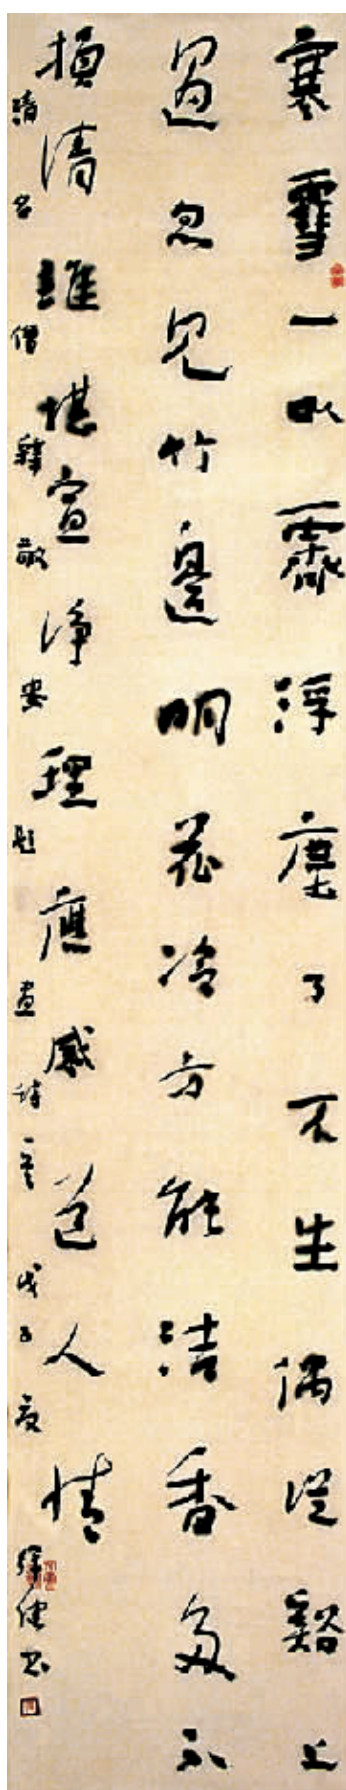 寒雪一以霽浮塵了不生偶從谿上
過忽見竹邊明花冷方能洁香多不
損清誰堪宣净理應感道人情
清名僧釋敬安題畫詩一首戊子夏健书